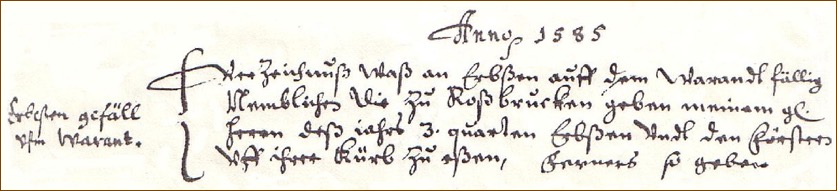 Anno 1585
Erbsen gefäll
vfm Warant.
Verzeichnuß waß an Erbßen auff dem Warandt fällig
Nemblichen die zu Roßbrucken geben meinem gl
herren deß jahrs 3. quarten Erbßen Vndt den Förstern
Vff ihre Kürb zu eßen, ferners so geben